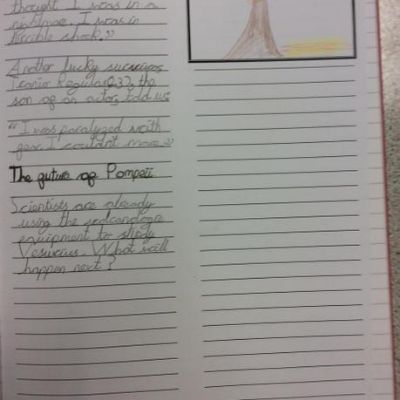 thought I was in a
nightmare. I was in
terrible shock."
Another lucky survivor,
(23), the
son of an actor, told us
"I was paralyzed with
fear. I couldn't move."
The future of Pompeii
Scientists are already
using the
equipment to study
Vesuvius. What will
happen next?